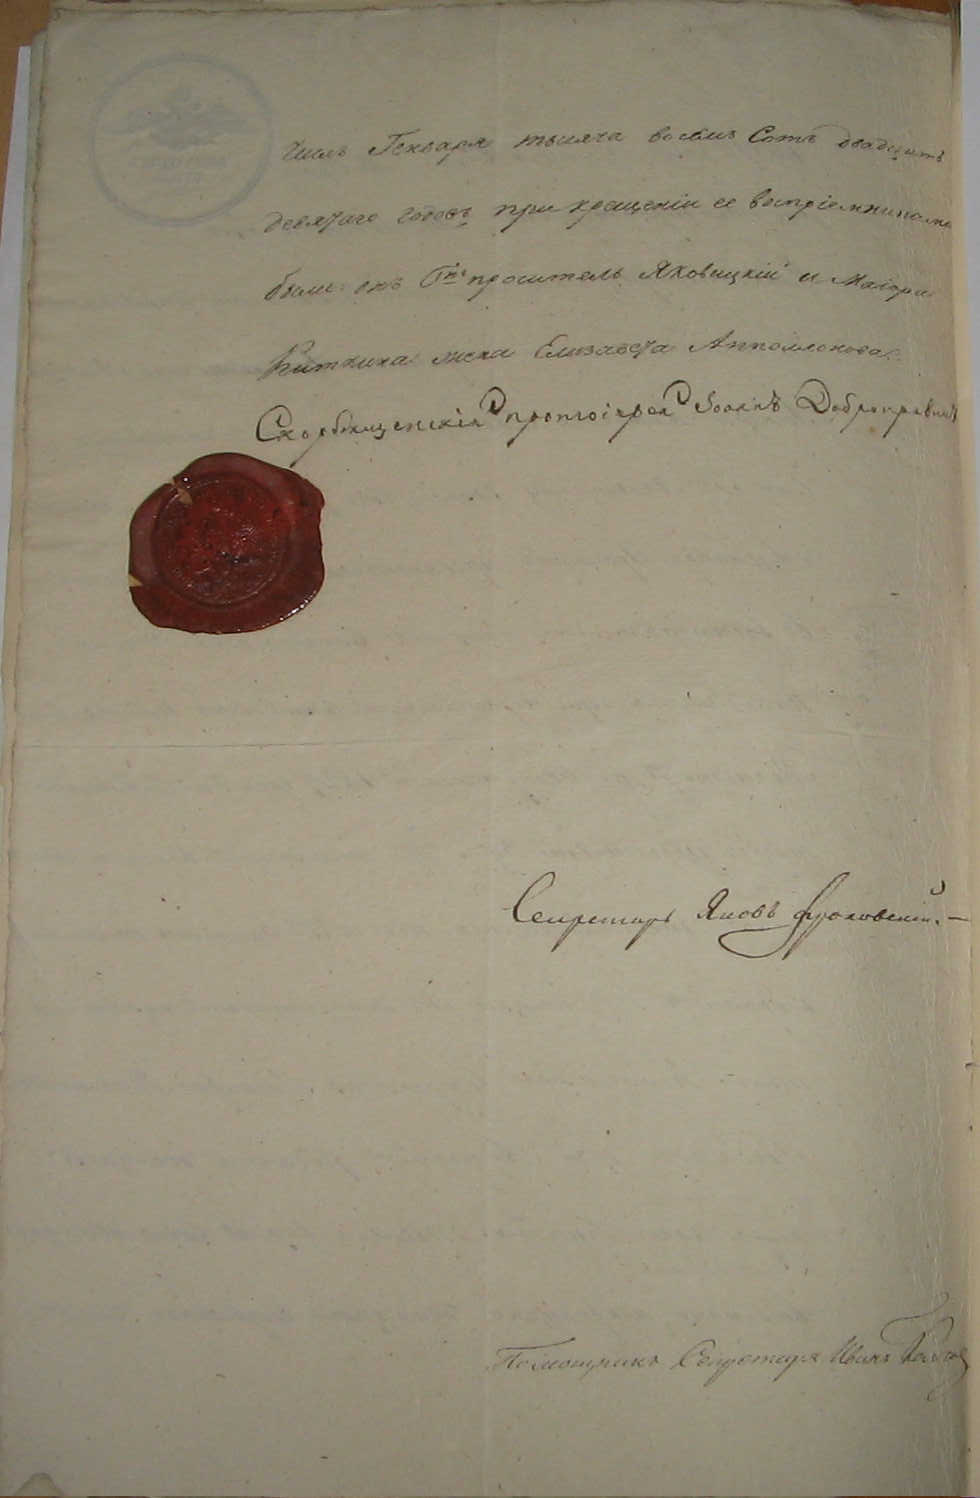 числъ Генваря тысяча восемь Сотъ двадцать
девятаго годовъ, при крещеніи ее воспріемниками
были: онъ Гнъ проситель Яковицкій и Маіора
жена Елизавета Апполлонова.
Скорбященскій протоіерей Іоаннъ Доброправинъ
Секретарь Яковъ
Помощникъ Секретаря Иванъ